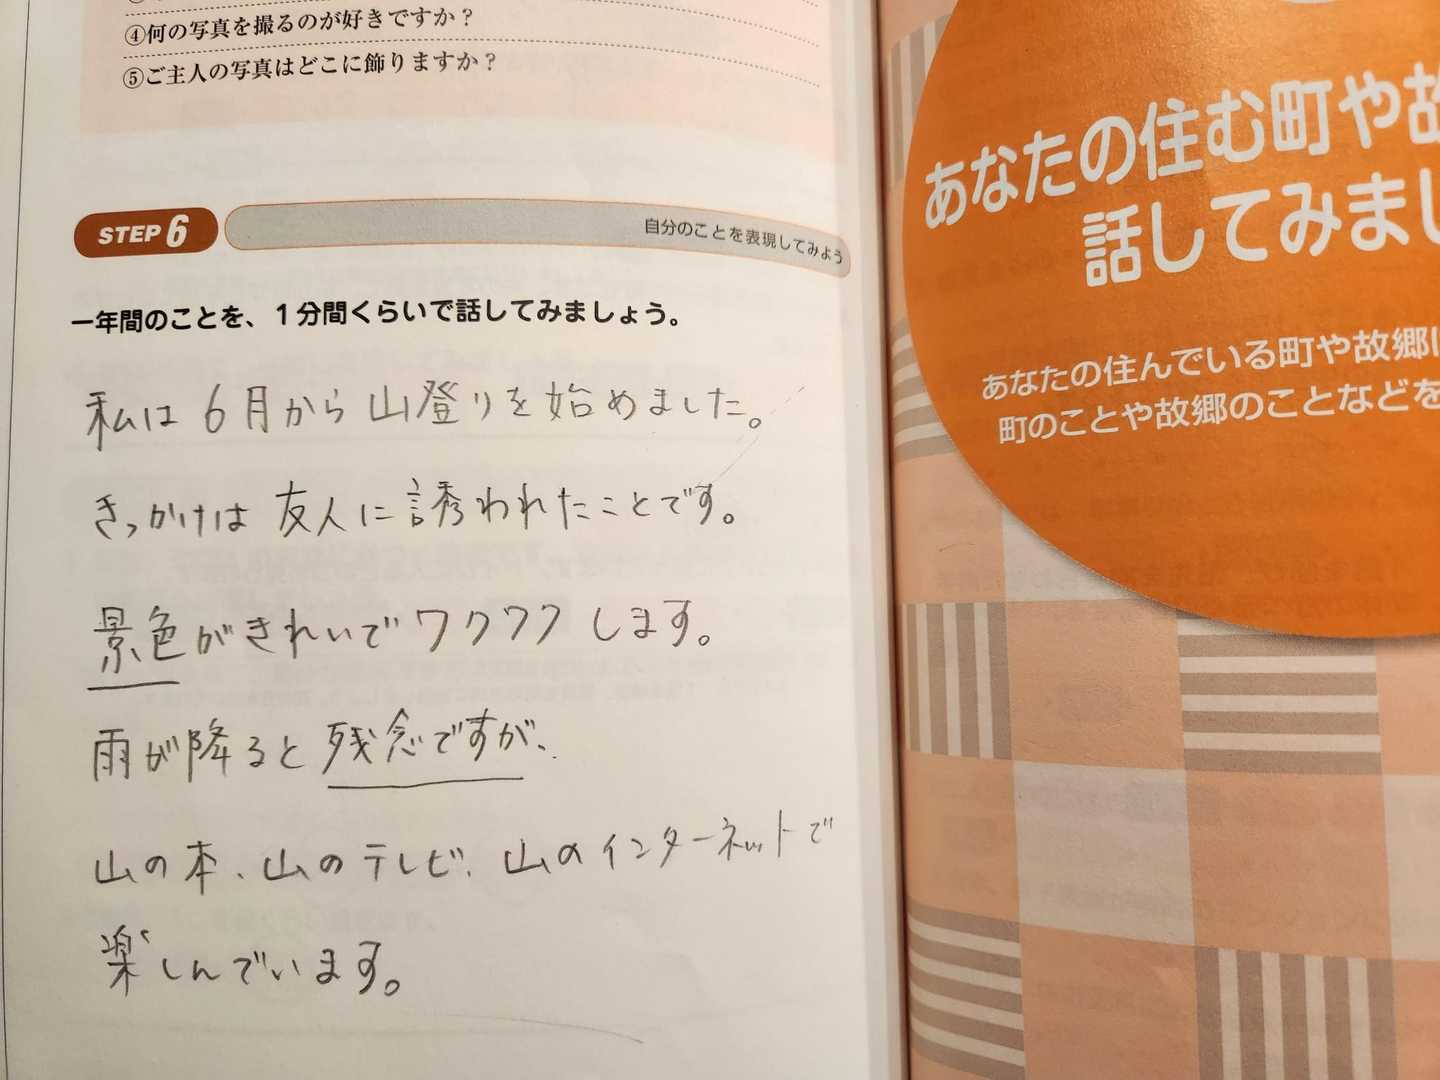 ④何の写真を撮るのが好きですか？
⑤ご主人の写真はどこに飾りますか？
STEP 6
自分のことを表現してみよう
一年間のことを、1分間くらいで話してみましょう。
私は6月から山登りを始めました。
きっかけは友人に誘われたことです。
景色がきれいでワクワクします。
雨が降ると残念ですが、
山の本、山のテレビ、山のインターネットで
楽しんでいます。
あなたの住む町や故
話してみまし
あなたの住んでいる町や故郷に
町のことや故郷のことなどを